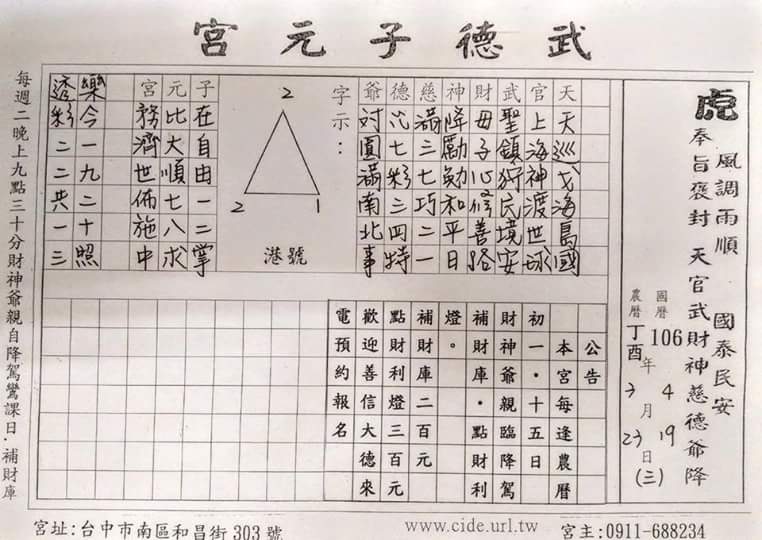 武德子元宮
虎
風調雨順 國泰民安
奉旨褒封 天官武財神慈德爺降
國曆 106 年 4 月 19 日 (三)
農曆 丁酉 年 3 月 23 日
天天巡戈海島國
官上海神渡世球
武聖鎮狩民境安
財母子心修善路
神降勵勉和平日
慈滿三七巧二一
德六七彩三四特
爺討圓滿南北事
字示：
2
2 1
港號
子在自由一二掌
元比大順七八求
宮務濟世佈施中
樂今一九二十照
透彩二二共一三
公告
本宮每逢農曆
初一．十五日
財神爺親臨降駕
補財庫．點財利
燈。
補財庫二百元
點財利燈三百元
歡迎善信大德來
電預約報名
每週二晚上九點三十分財神爺親自降駕鸞課日．補財庫
宮址:台中市南區和昌街 303 號
www.cide.url.tw
宮主:0911-688234